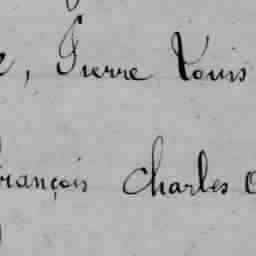 , Pierre Louis
François Charles